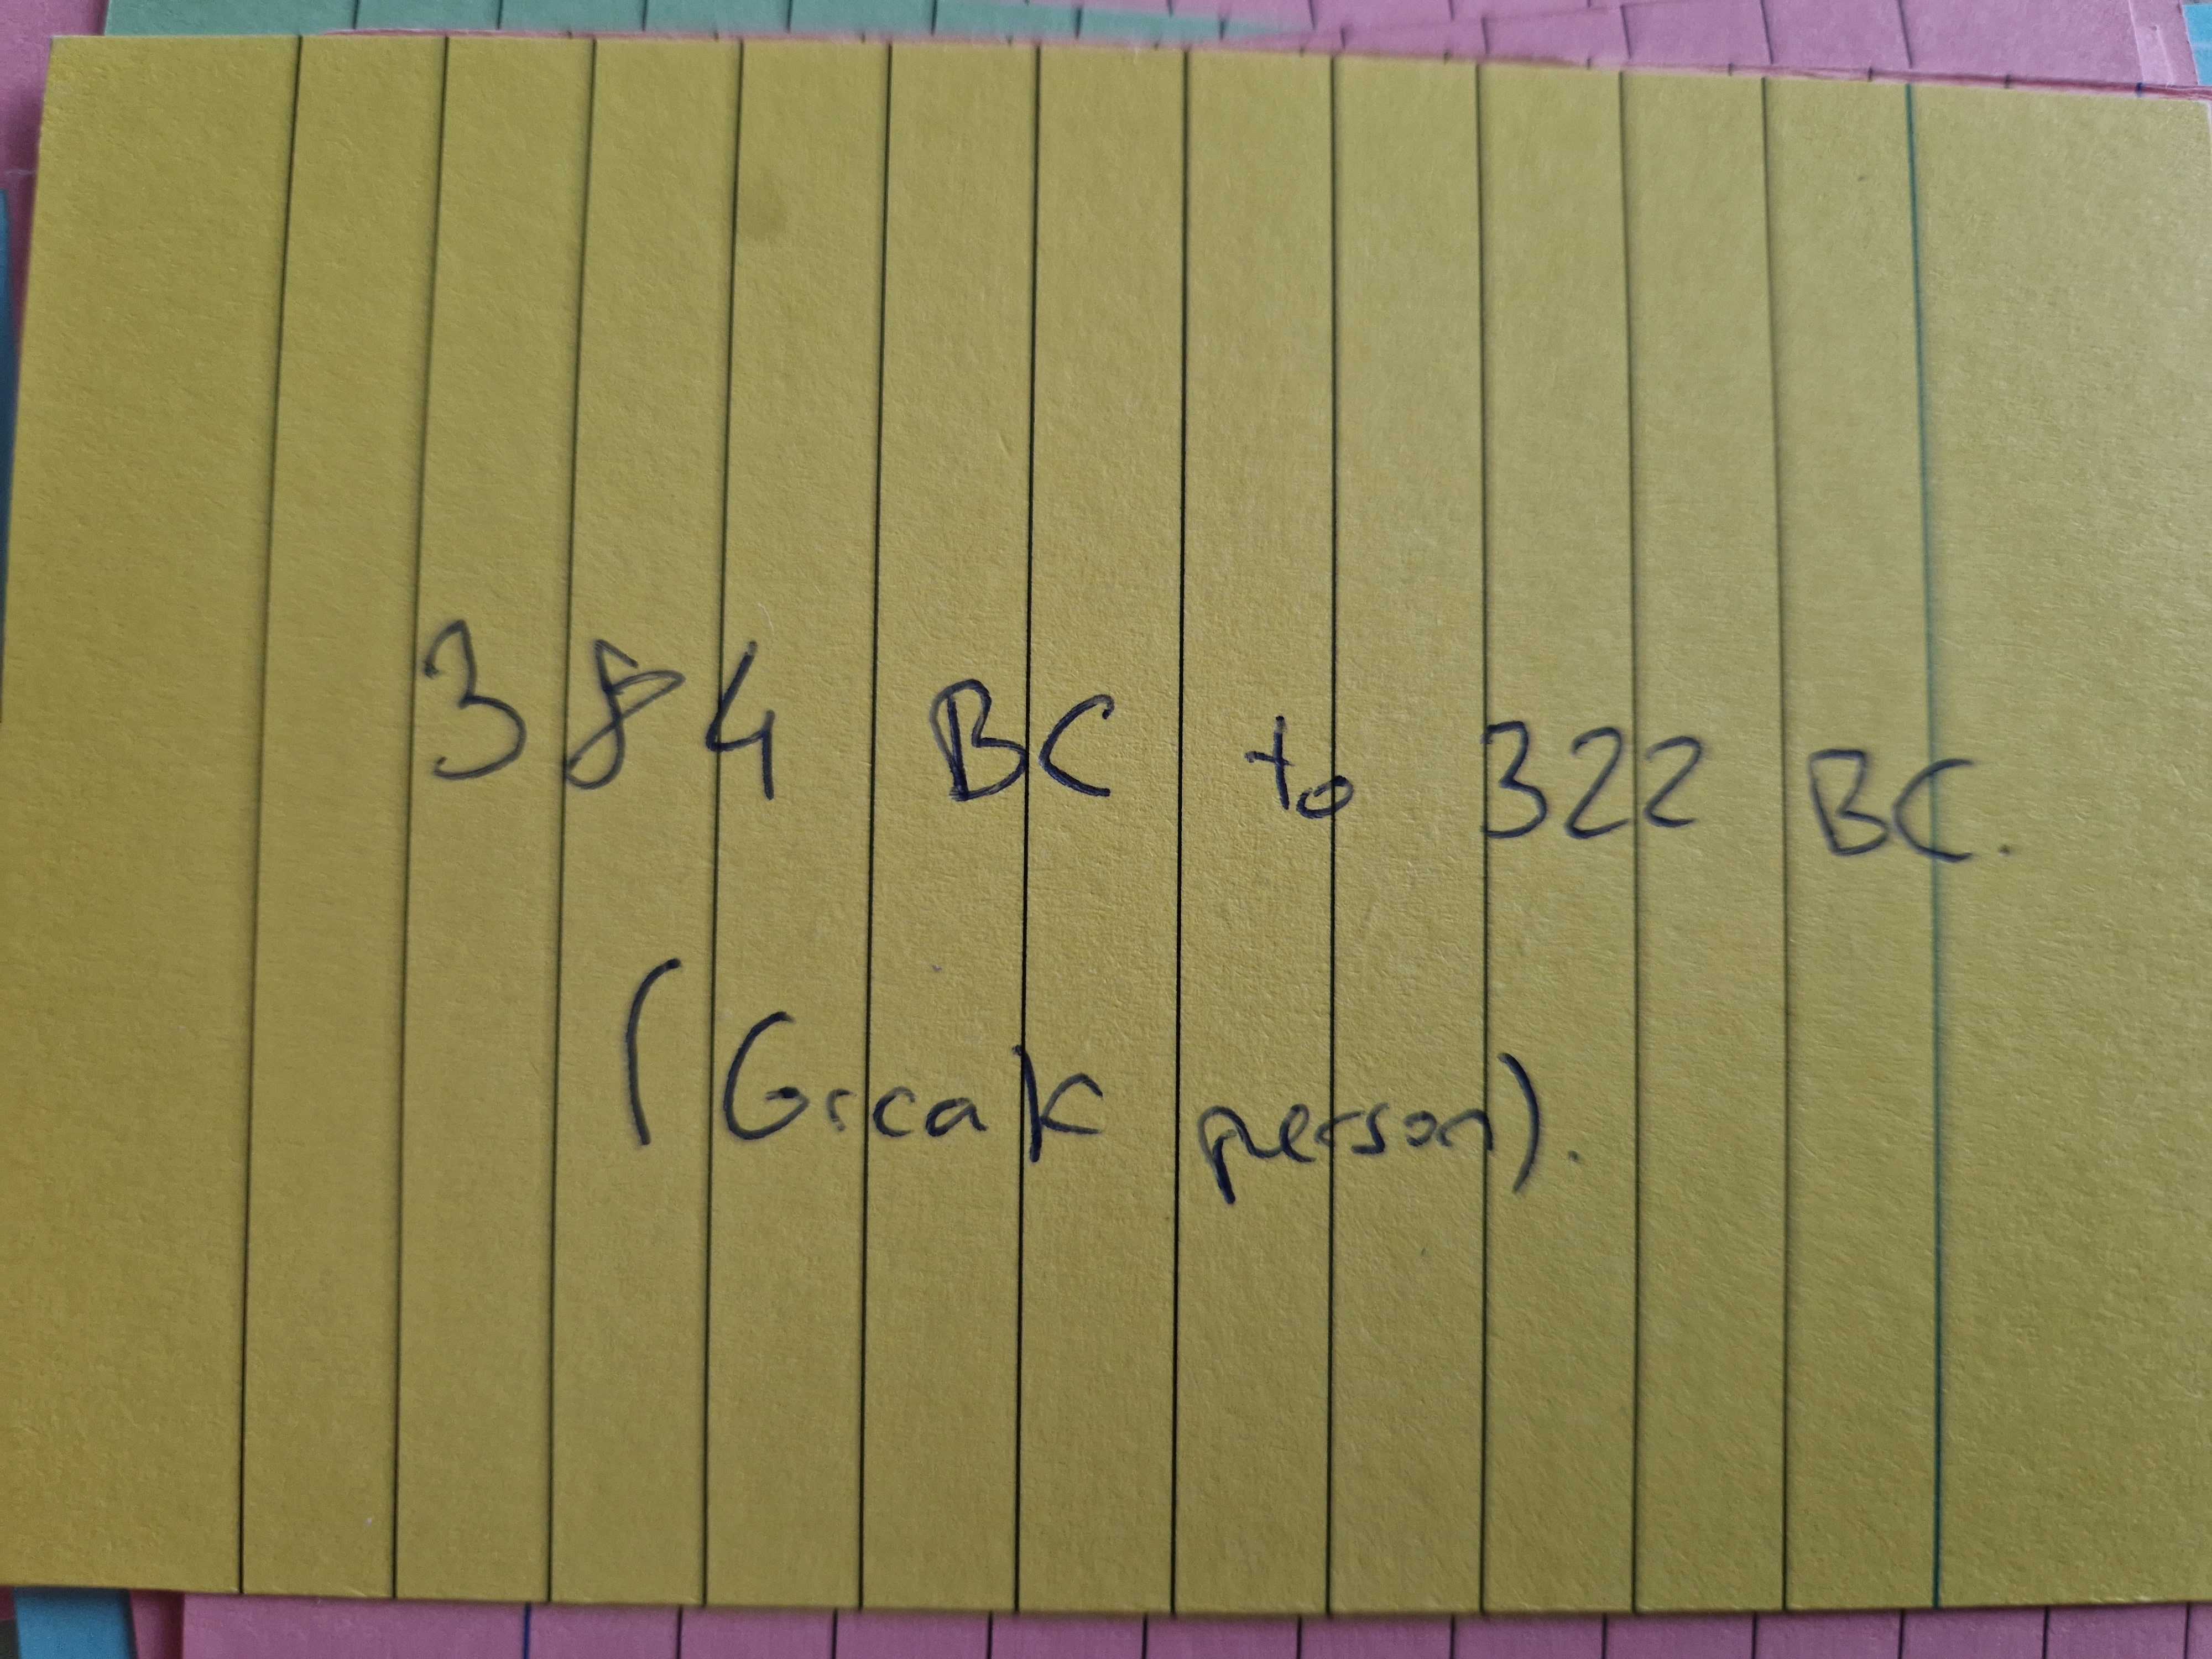 384 BC to 322 BC.
(Greak person).